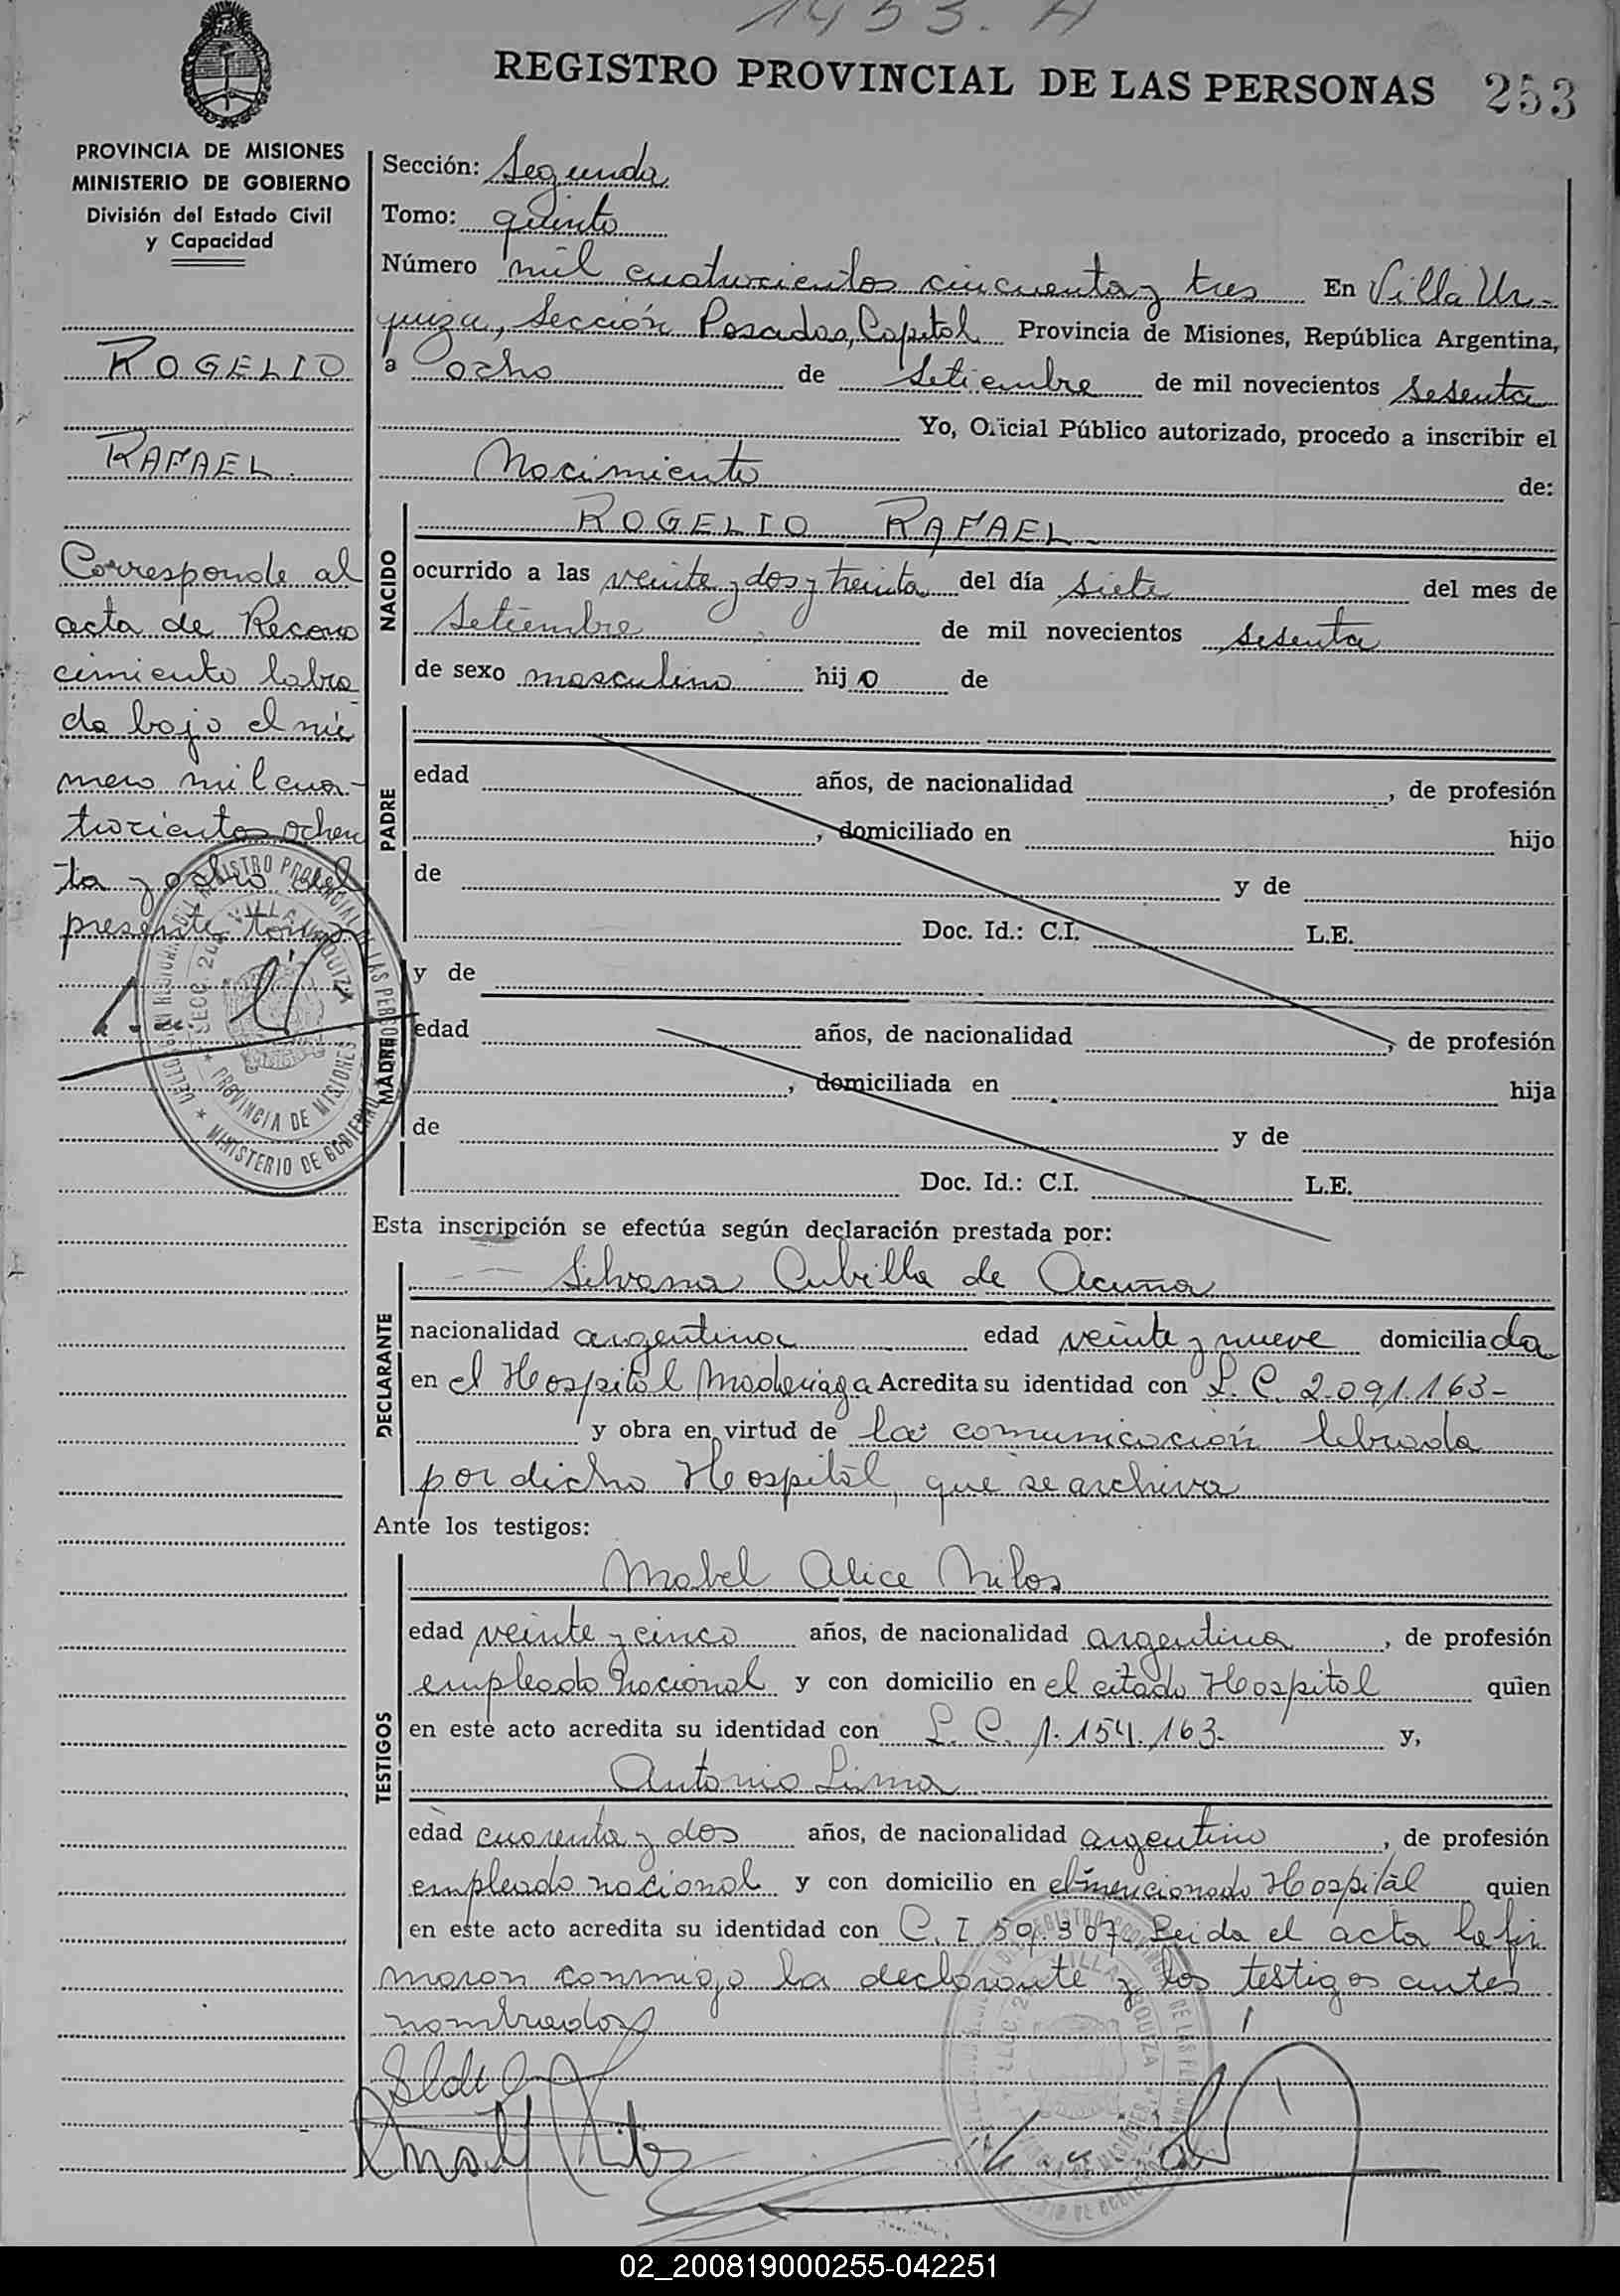 1453. A
REGISTRO PROVINCIAL DE LAS PERSONAS 253
PROVINCIA DE MISIONES
MINISTERIO DE GOBIERNO
División del Estado Civil
y Capacidad
ROGELIO
RAFAEL.
Corresponde al
acta de Recono
cimiento labra
da bajo el nú
mero mil cua-
trocientos ochen
ta y ocho del
presente tomo
Sección: Segunda
Tomo: quinto
Número mil cuatrocientos cincuenta y tres En Villa Ur-
quiza, Sección Posadas, Capital Provincia de Misiones, República Argentina,
a ocho de Setiembre de mil novecientos sesenta
Yo, Oficial Público autorizado, procedo a inscribir el
Nacimiento de:
NACIDO
ROGELIO RAFAEL-
ocurrido a las veinte y dos y treinta del día siete del mes de
Setiembre de mil novecientos sesenta
de sexo masculino hijo de
PADRE
edad años, de nacionalidad , de profesión
, domiciliado en hijo
de y de
Doc. Id.: C.I. L.E.
y de
MADRE
edad años, de nacionalidad , de profesión
, domiciliada en hija
de y de
Doc. Id.: C.I. L.E.
Esta inscripción se efectúa según declaración prestada por:
DECLARANTE
Silvana Cubilla de Acuña
nacionalidad argentina edad veinte y nueve domiciliada
en el Hospital Madariaga Acredita su identidad con L. C. 2.091.163-
y obra en virtud de la comunicación librada
por dicho Hospital, que se archiva
Ante los testigos:
TESTIGOS
Mabel Alice Milos
edad veinte y cinco años, de nacionalidad argentina , de profesión
empleada nacional y con domicilio en el citado Hospital quien
en este acto acredita su identidad con L. C. 1.154.163- y,
Antonio Lima
edad cuarenta y dos años, de nacionalidad argentino , de profesión
empleado nacional y con domicilio en el mencionado Hospital quien
en este acto acredita su identidad con C. I 59.307 Leida el acta la fir
maron conmigo la declarante y los testigos antes
nombrados
REGISTRO PROVINCIAL DE LAS PERSONAS
VILLA URQUIZA
PROVINCIA DE MISIONES
MINISTERIO DE GOBIERNO
02_200819000255-042251